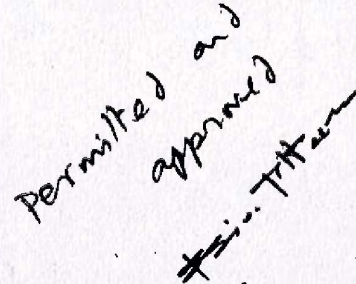 Permitted and
approved